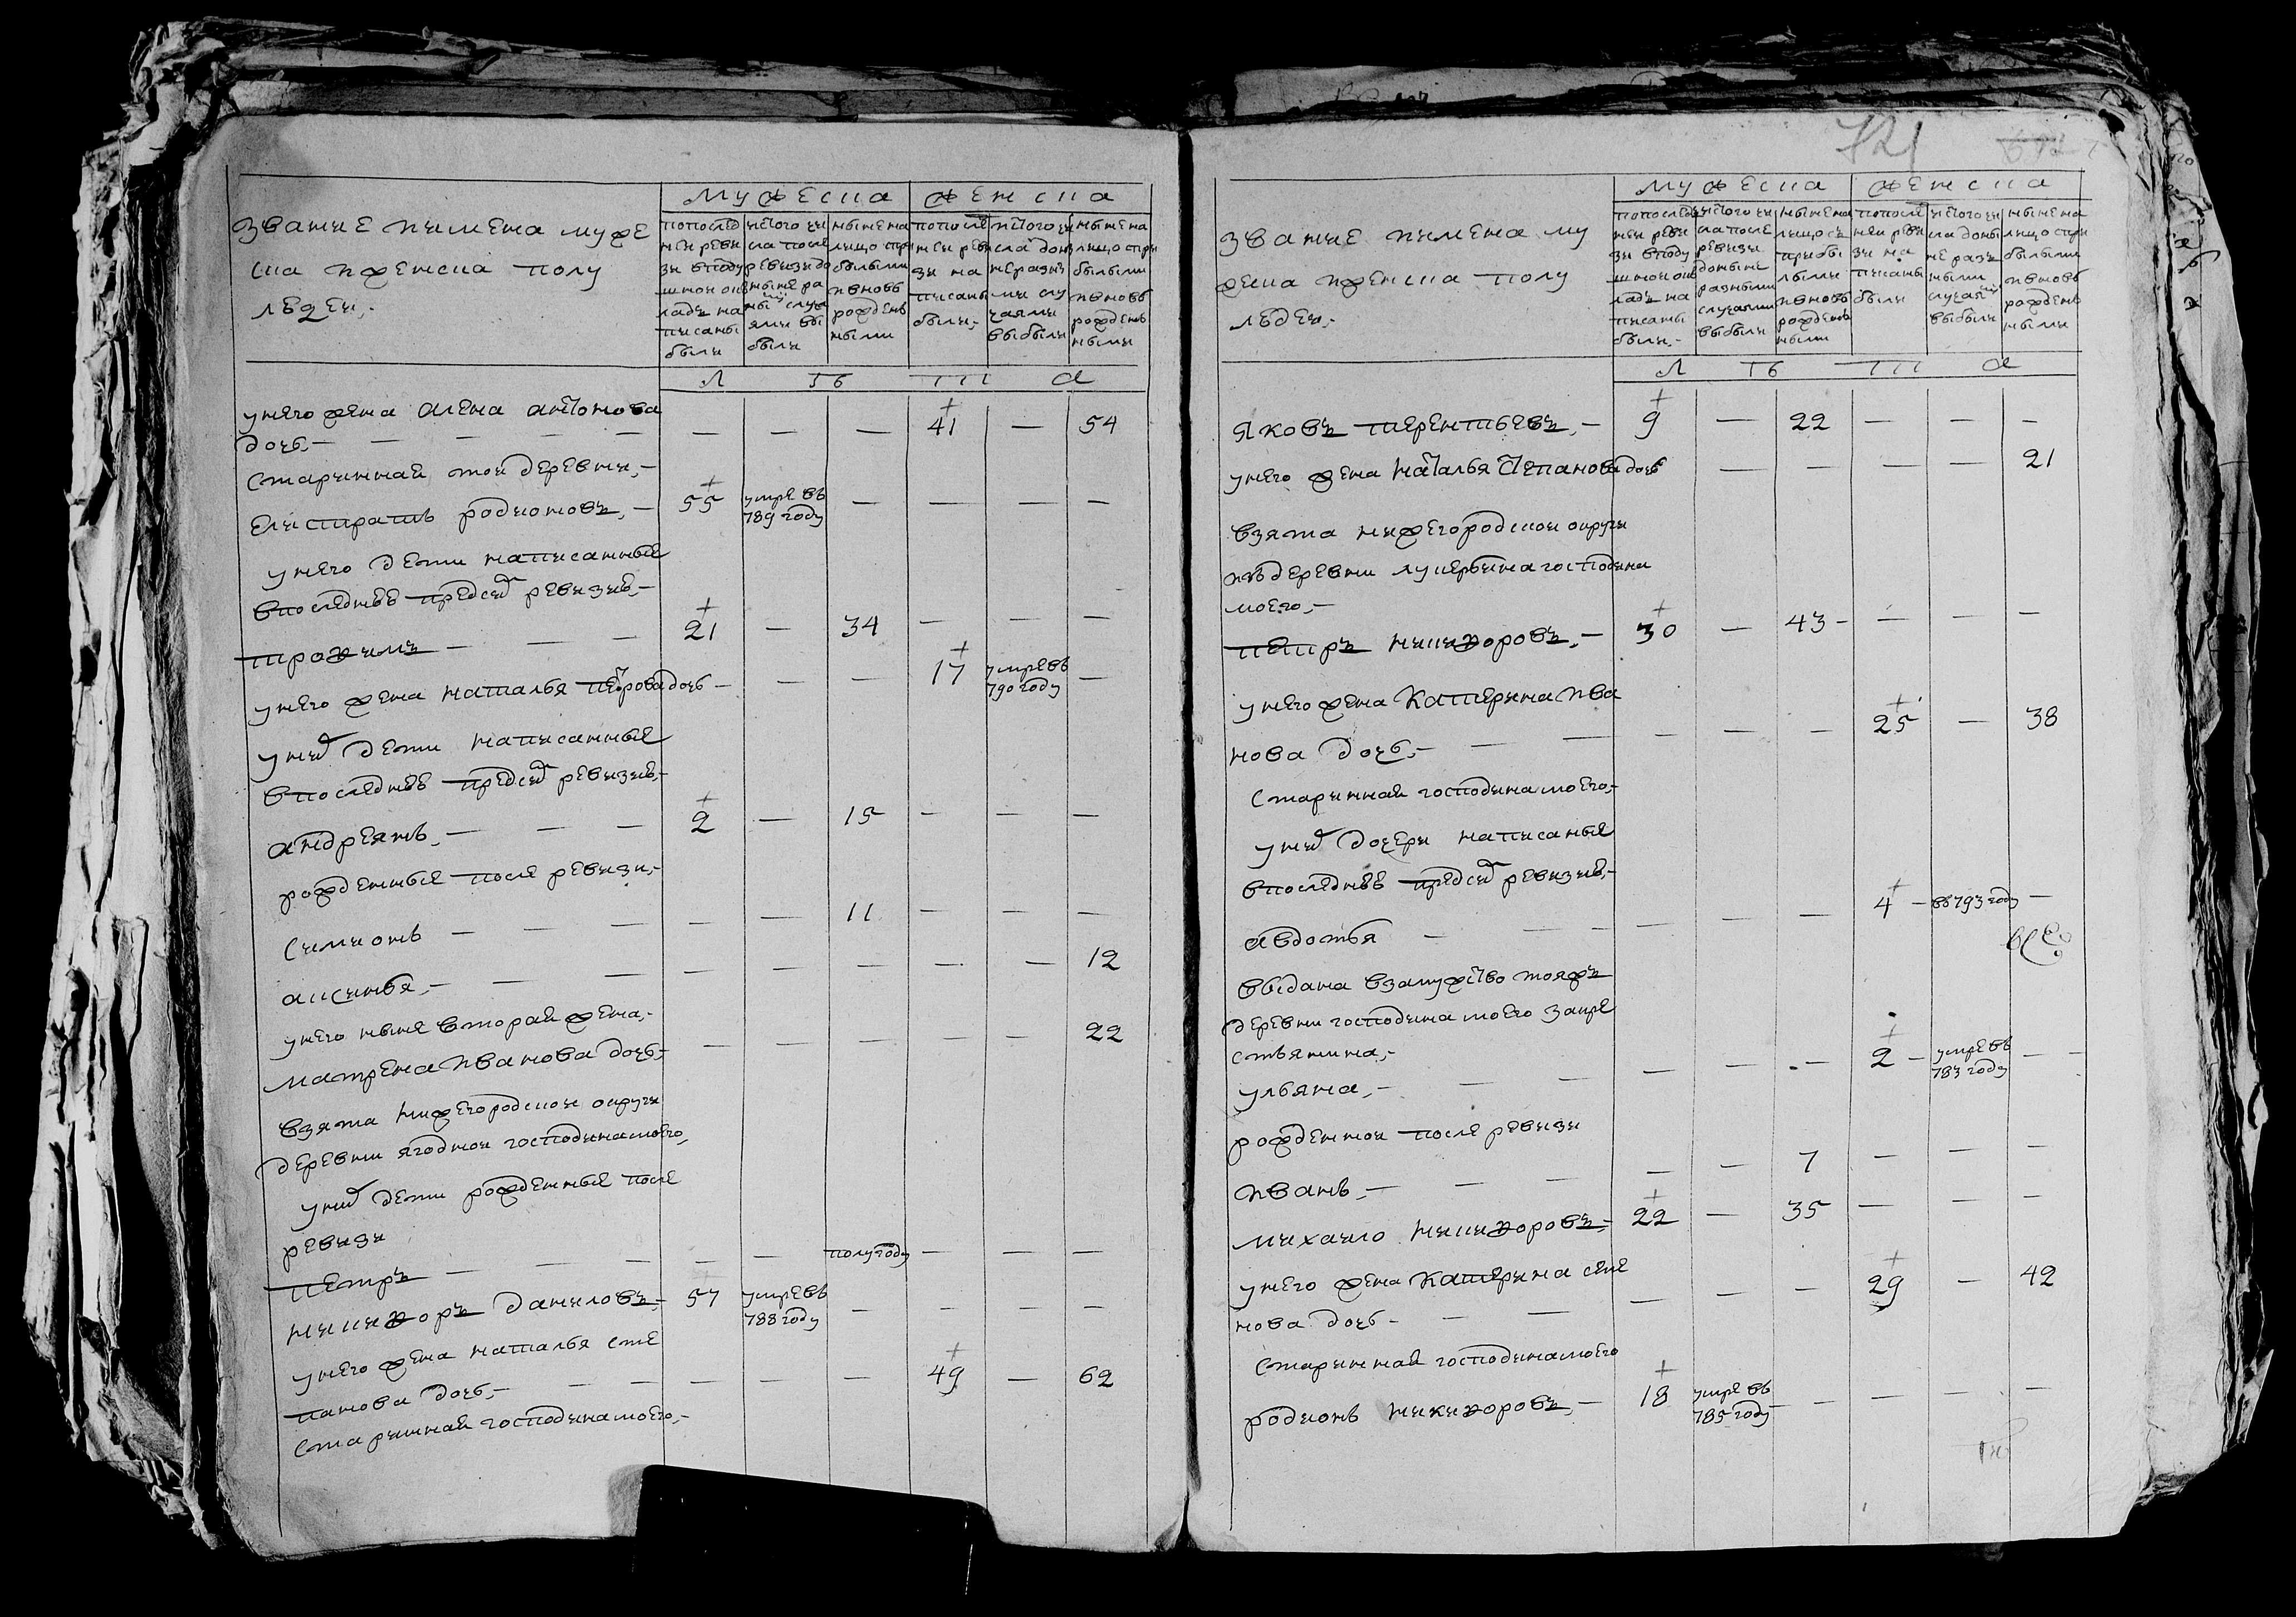 звание имена муже
ска иженска полу
людеи,-
мужеска
женска
попослед
неи реви
зи вподу
шнои ок
ладъ на
писаны
были
исtого чи
сла после
ревизидо
ныне ра
зны слу
аями вы
были
ныне на
лицо спри
былыми
ивновь
рожденъ
ными
попослѣ
неи реви
зи на
писаны
были,-
исtого чи
сла доны
не разны
ми слу
чаями
выбыли
ныне на
лицо спри
былыми
ивновь
рожденъ
ными
л ѣ т а
унего жена алена антонова
дочь,- — — — — — — — 41 — 54
старинная тои деревни,-
елистратъ родионовъ,- 55 умре въ 789 году — — — —
унего дети написанные
впоследнюю предсеи ревизию,-
трофимъ — — — 21 — 34 — — —
унего жена наталья петрова дочь — — — 17 умре въ 790 году —
унихъ дети написанные
впоследнюю предсеи ревизию,-
андреянъ,- — — — 2 — 15 — — —
рожденные после ревизи,-
симионъ — — — — — 11 — — —
аксинья,- — — — — — — — 12
унего ныне вторая жена,-
матрена иванова дочь,- — — — — — 22
взята нижегородскои округи
деревни ягоднои господинамоего,
унихъ дети рожденные после
ревизи
петръ — — — — — полугоду — — —
никифоръ даниловъ,- 57 умре въ 788 году — — — —
унего жена наталья сте
панова дочь,- — — — — — 49 — 62
старинная господинамоего,-
721
звание имена му
жеска иженска полу
людеи,-
мужеска
женска
попослед
неи реви
зи вподу
шнои ок
ладъ на
писаны
были,-
исtого чи
сла после
ревизи
доныне
разными
случаями
выбыли
ныне на
лицо съ
прибы
лыми
ивновь
рожденъ
ными
попослѣ
неи реви
зи на
писаны
были
исtого чи
сла доны
не разъ
ными
случая
выбыли
ныне на
лицо спри
былыми
ивновь
рожденъ
ными
л ѣ т а
яковъ терентьевъ,- 9 — 22 — — —
унего жена наталья степанова дочь — — — — — 21
взята нижегородскои округи
изъ деревни лукерьина господина
моего,-
петръ никифоровъ,- 30 — 43 — — —
унего жена катерина ива
нова дочь,- — — — — — 25 — 38
старинная господина моего,-
унихъ дочери написаные
впоследнюю предсеи ревизию,-
авдотья — — — — — — 4 — въ 793 году —
выдана взамужство тояжъ
деревни господина моего закре
стьянина,-
ульяна,- — — — — — 2 — умре въ 783 году — —
рожденнои после ревизи
иванъ,- — — — — 7 — — —
михаило никифоровъ,- 22 — 35 — — —
унего жена катерина семе
нова дочь - — — — — — 29 — 42
старинная господинамоего
родионъ никифоровъ,- 18 умре въ 785 году — — — —